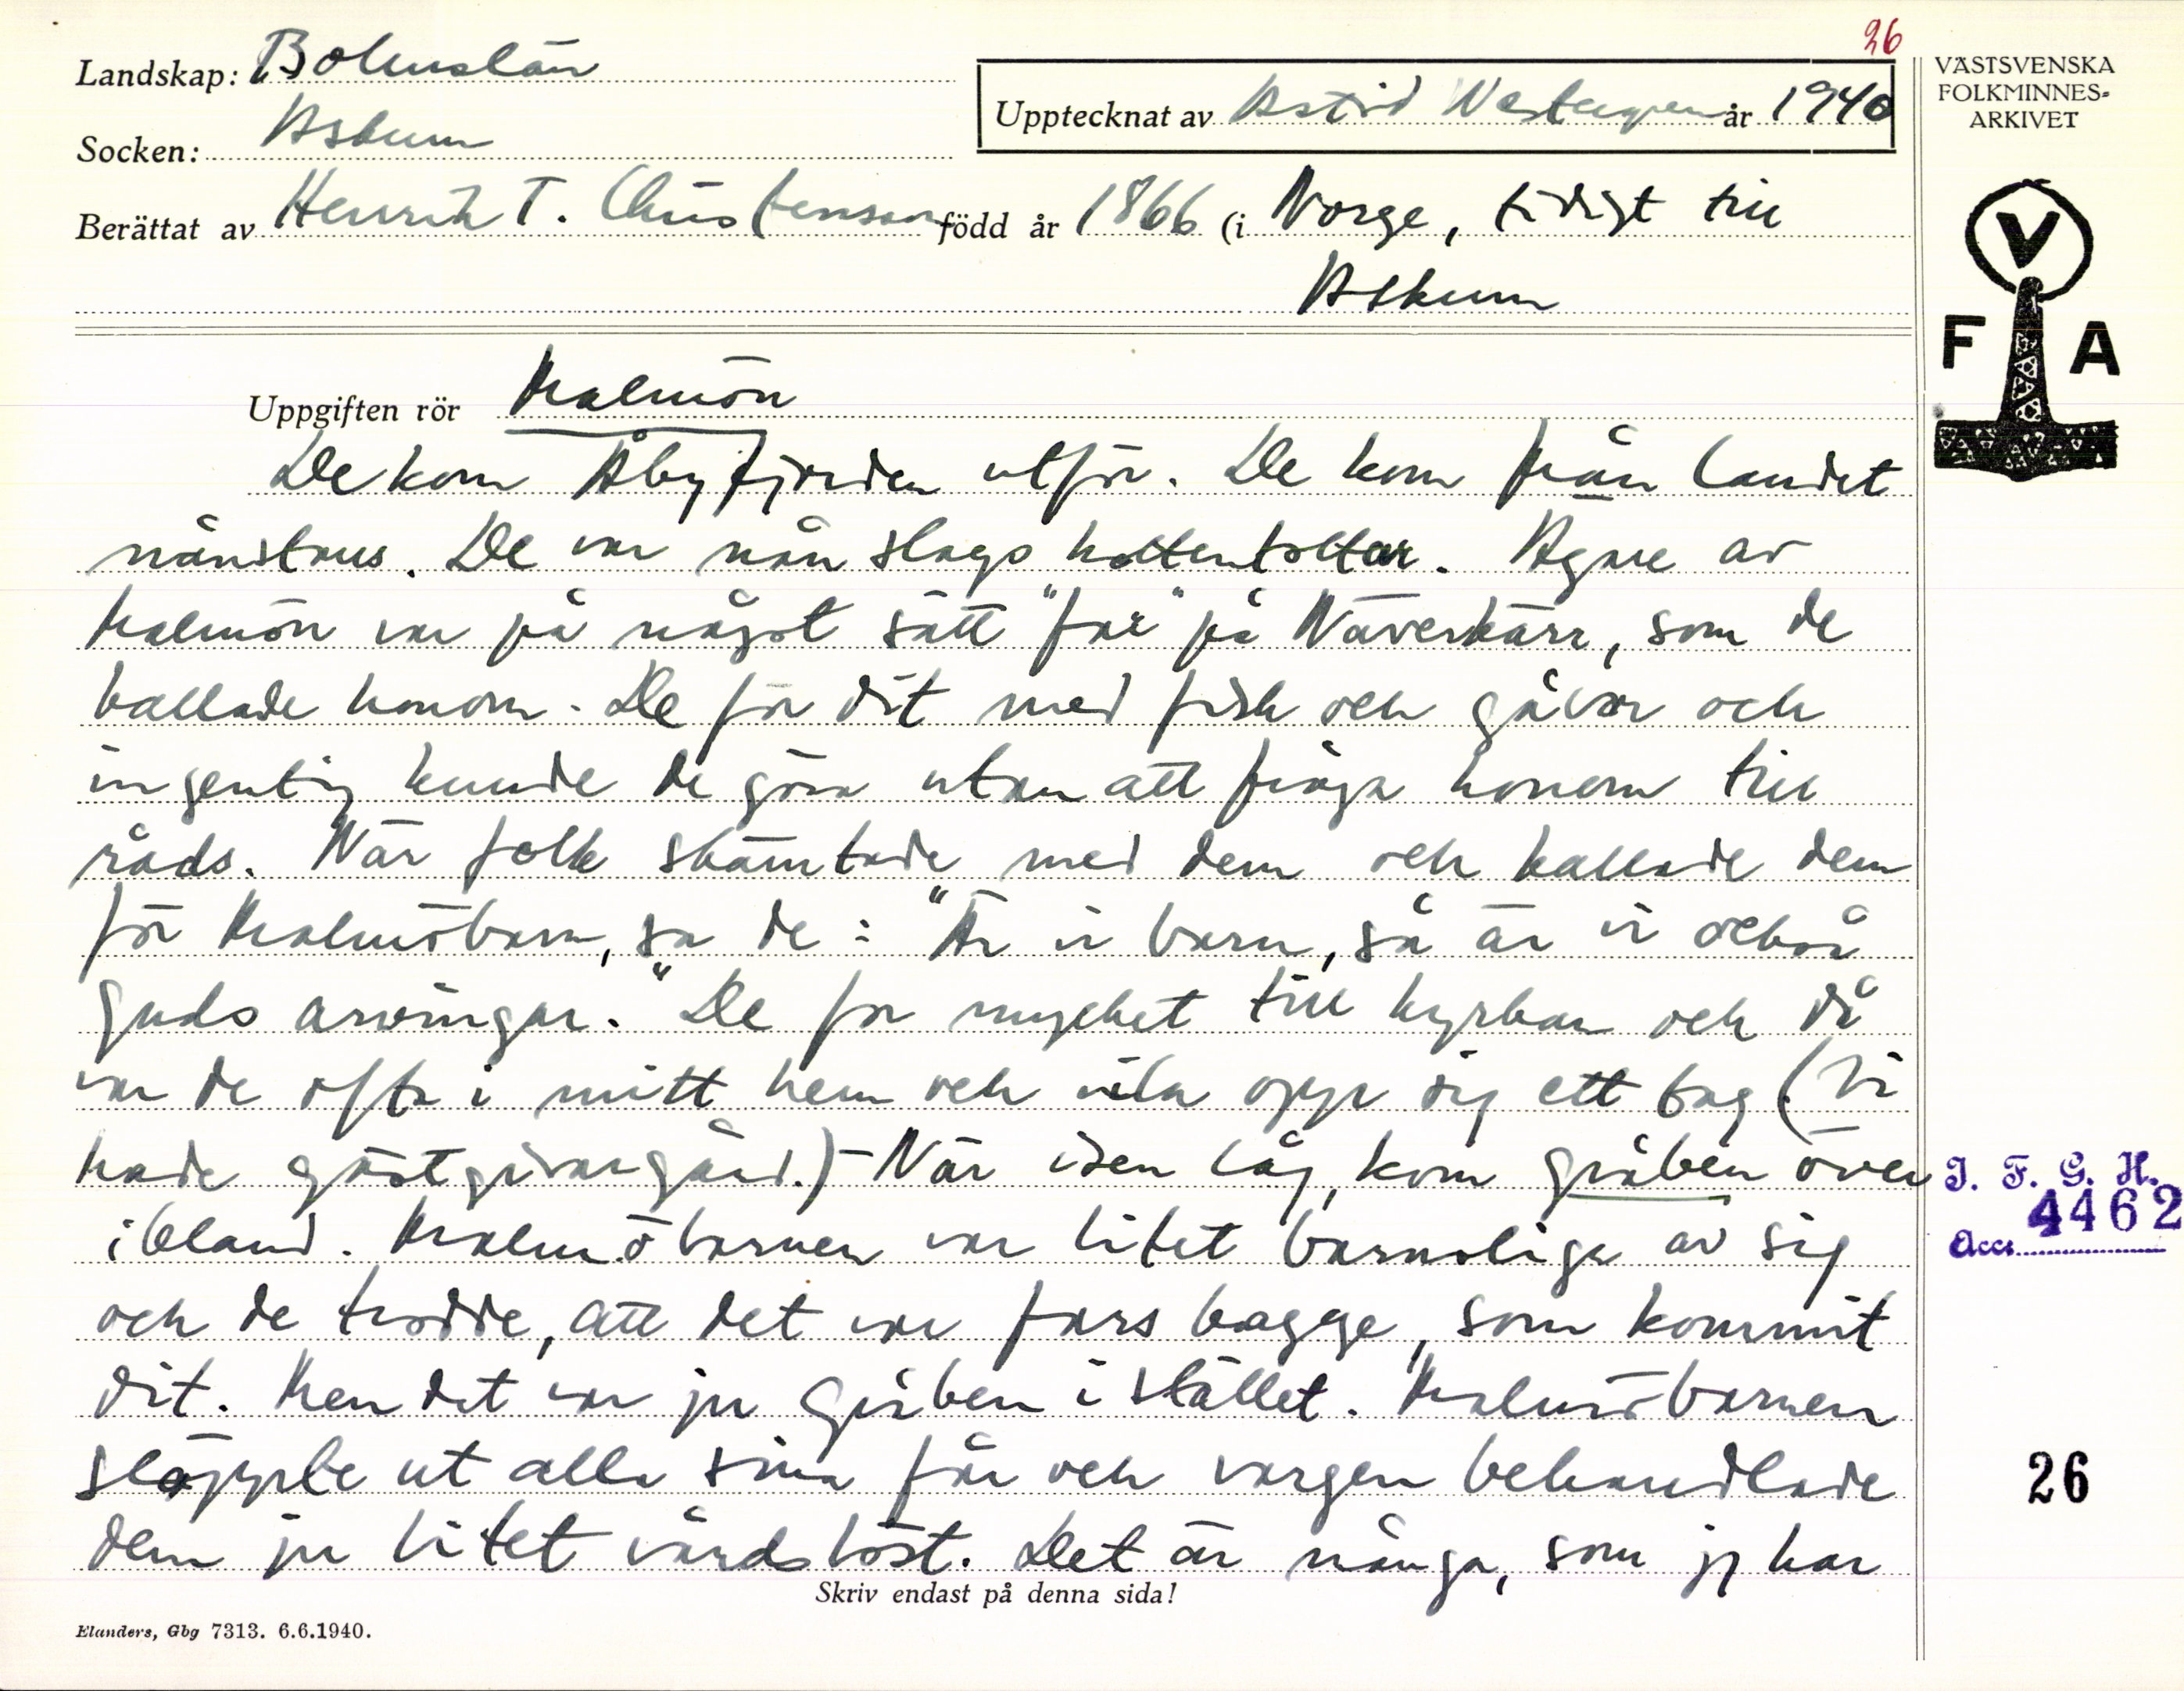 26
Landskap: Bohuslän
Socken: Askum
Upptecknat av Astrid Westergren år 1940
Berättat av Henrik T. Christenson född år 1866 (i Norge, tidigt till
Askum
VÄSTSVENSKA
FOLKMINNES=
ARKIVET
V
F A
Uppgiften rör Malmön
De kom Åbyfjorden utför. De kom från landet
nånstans. De var nån slags hottentottar. Ägare av
Malmön var på något sätt "far" på Näverkärr, som de
kallade honom. De för dit med fisk och gåvor och
ingenting kunde de göra utan att fråga honom till
råds. När folk skämtade med dem och kallade dem
för Malmöbarn, sa de: "Är vi barn, så är vi också
Guds arvingar." De for mycket till kyrkan och då
var de ofta i mitt hem och vila opp sig ett tag (Vi
hade gästgivaregård.) - När isen låg, kom gråben över
ibland. Malmöbarnen var litet barnsliga av sig
och de trodde, att det var fars bagge, som kommit
dit. Men det var ju Gråben i stället. Malmöbarnen
släppte ut alla sina får och vargen behandlade
dem ju litet vårdslöst. Det är många, som jag har
I. F. G. H.
Acc. 4462
26
Skriv endast på denna sida!
Elanders, Gbg 7313. 6.6.1940.